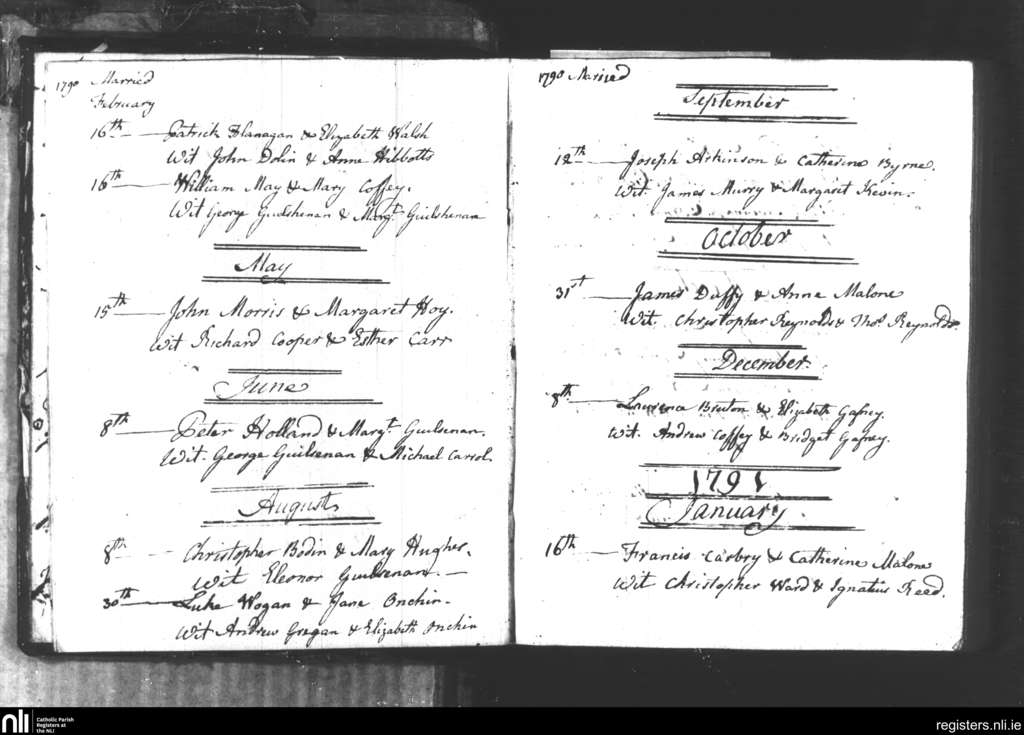 1790 Married
February
16th — Patrick Flanagan & Elizabeth Walsh
Wit John Dolin & Anne Hibbotts
16th — William May & Mary Coffey.
Wit George Guilshenan & Margt. Guilshenan
May
15th — John Morris & Margaret Hoy.
Wit Richard Cooper & Esther Carr
June
8th — Peter Holland & Margt. Guilsenan.
Wit. George Guilsenan & Michael Carrol.
August
8th — Christopher Bodin & Mary Hughes.
Wit Eleonor Guilsenan. —
30th — Luke Hogan & Jane Onchin.
Wit Andrew Gregan & Elizabeth Onchin
1790 Married
September
12th — Joseph Atkinson & Catherine Byrne.
Wit. James Murry & Margaret Kevin.
October
31st — James Duffy & Anne Malone
Wit. Christopher Reynolds & Thos. Reynolds
December
8th — Lawrence Bruton & Elizabeth Gafney.
Wit. Andrew Coffey & Bridget Gafney.
1791
January.
16th — Francis Carbry & Catherine Malone
Wit Christopher Ward & Ignatius Reed.
nli
Catholic Parish
Registers at
the NLI
registers.nli.ie